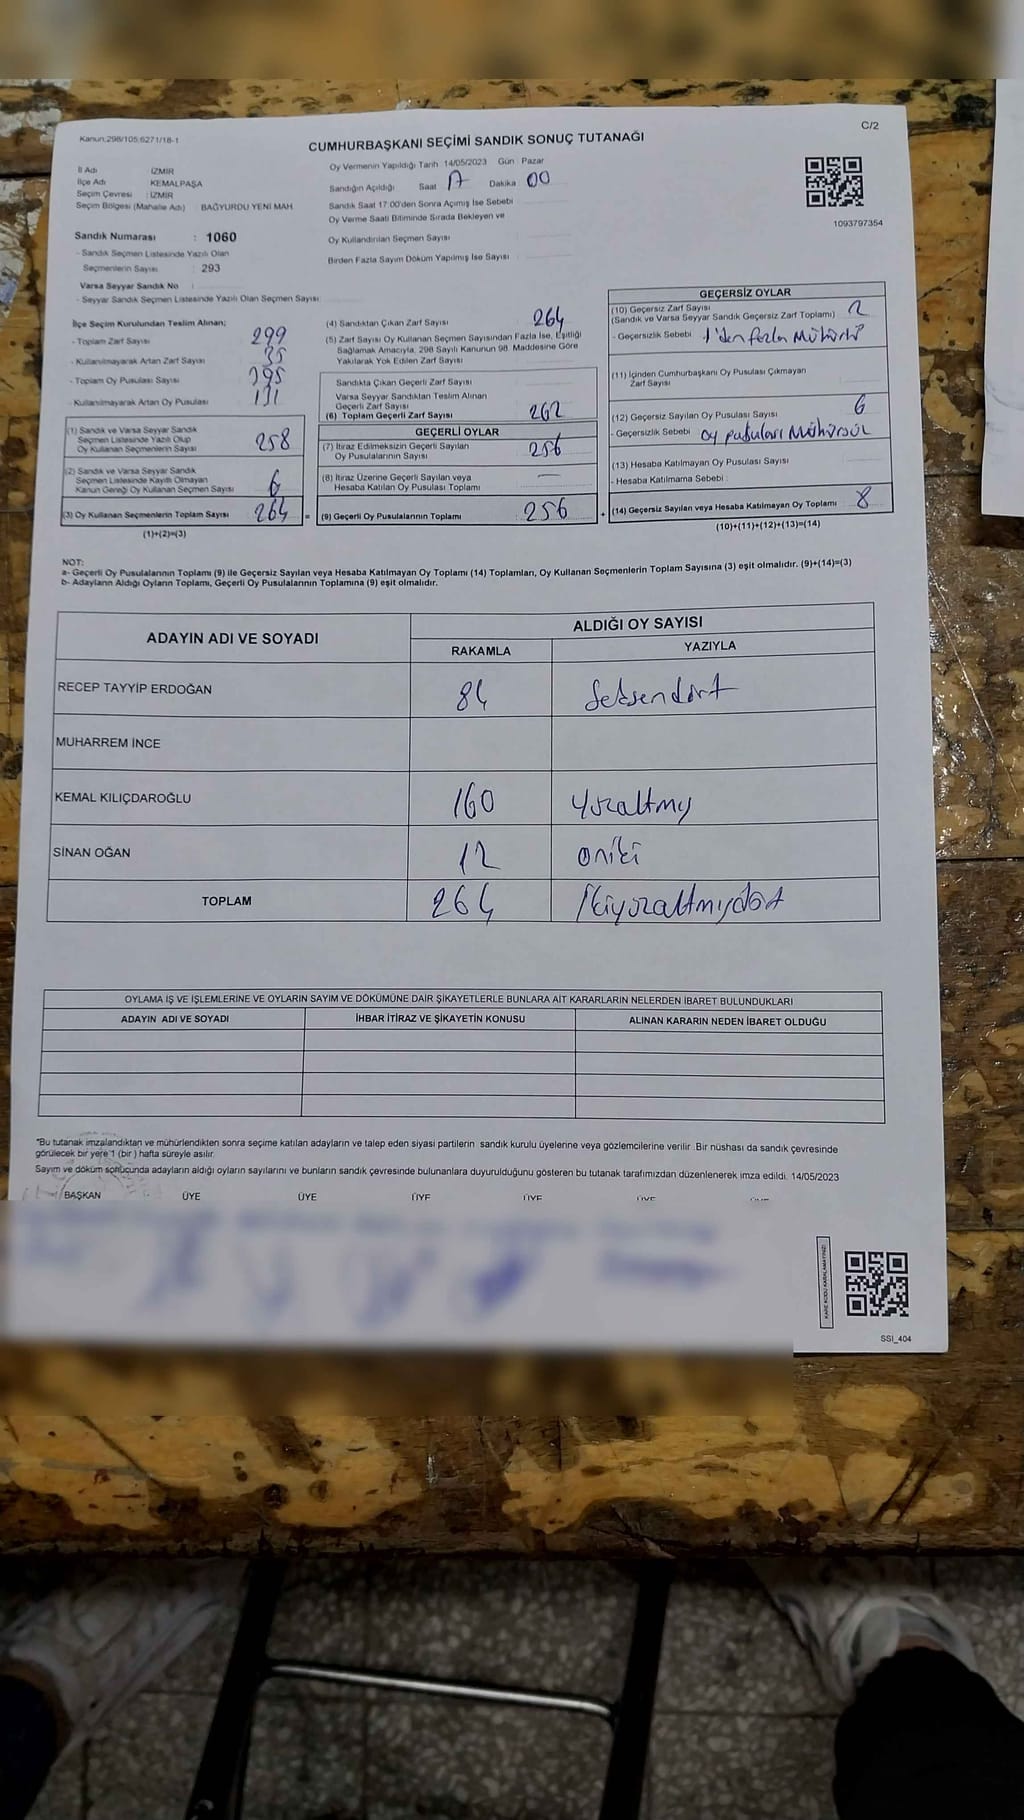 Kanun:298/105;6271/18-1
C/2
CUMHURBAŞKANI SEÇİMİ SANDIK SONUÇ TUTANAĞI
İl Adı : İZMİR
İlçe Adı : KEMALPAŞA
Seçim Çevresi : İZMİR
Seçim Bölgesi (Mahalle Adı) : BAĞYURDU YENİ MAH.
Sandık Numarası : 1060
- Sandık Seçmen Listesinde Yazılı Olan
Seçmenlerin Sayısı : 293
Varsa Seyyar Sandık No :
- Seyyar Sandık Seçmen Listesinde Yazılı Olan Seçmen Sayısı:
Oy Vermenin Yapıldığı Tarih 14/05/2023 Gün : Pazar
Sandığın Açıldığı Saat 17 Dakika 00
Sandık Saat 17:00'den Sonra Açımış İse Sebebi
Oy Verme Saati Bitiminde Sırada Bekleyen ve
Oy Kullandırılan Seçmen Sayısı
Birden Fazla Sayım Döküm Yapılmış İse Sayısı
1093797354
İlçe Seçim Kurulundan Teslim Alınan;
- Toplam Zarf Sayısı 299
- Kullanılmayarak Artan Zarf Sayısı 35
- Toplam Oy Pusulası Sayısı 395
- Kullanılmayarak Artan Oy Pusulası 131
(1) Sandık ve Varsa Seyyar Sandık
Seçmen Listesinde Yazılı Olup
Oy Kullanan Seçmenlerin Sayısı 258
(2) Sandık ve Varsa Seyyar Sandık
Seçmen Listesinde Kayıtlı Olmayan
Kanun Gereği Oy Kullanan Seçmen Sayısı 6
(3) Oy Kullanan Seçmenlerin Toplam Sayısı 264 =
(1)+(2)=(3)
(4) Sandıktan Çıkan Zarf Sayısı 264
(5) Zarf Sayısı Oy Kullanan Seçmen Sayısından Fazla İse, Eşitliği
Sağlamak Amacıyla, 298 Sayılı Kanunun 98. Maddesine Göre
Yakılarak Yok Edilen Zarf Sayısı
Sandıkta Çıkan Geçerli Zarf Sayısı
Varsa Seyyar Sandıktan Teslim Alınan
Geçerli Zarf Sayısı
(6) Toplam Geçerli Zarf Sayısı 262
GEÇERLİ OYLAR
(7) İtiraz Edilmeksizin Geçerli Sayılan
Oy Pusulalarının Sayısı 256
(8) İtiraz Üzerine Geçerli Sayılan veya
Hesaba Katılan Oy Pusulası Toplamı —
(9) Geçerli Oy Pusulalarının Toplamı 256 +
GEÇERSİZ OYLAR
(10) Geçersiz Zarf Sayısı 2
(Sandık ve Varsa Seyyar Sandık Geçersiz Zarf Toplamı)
- Geçersizlik Sebebi 1'den fazla Mühürlü
(11) İçinden Cumhurbaşkanı Oy Pusulası Çıkmayan
Zarf Sayısı
(12) Geçersiz Sayılan Oy Pusulası Sayısı 6
- Geçersizlik Sebebi oy pusuları Mühürsül
(13) Hesaba Katılmayan Oy Pusulası Sayısı
- Hesaba Katılmama Sebebi
(14) Geçersiz Sayılan veya Hesaba Katılmayan Oy Toplamı 8
(10)+(11)+(12)+(13)=(14)
NOT:
a- Geçerli Oy Pusulalarının Toplamı (9) ile Geçersiz Sayılan veya Hesaba Katılmayan Oy Toplamı (14) Toplamları, Oy Kullanan Seçmenlerin Toplam Sayısına (3) eşit olmalıdır. (9)+(14)=(3)
b- Adayların Aldığı Oyların Toplamı, Geçerli Oy Pusulalarının Toplamına (9) eşit olmalıdır.
ADAYIN ADI VE SOYADI
ALDIĞI OY SAYISI
RAKAMLA YAZIYLA
RECEP TAYYİP ERDOĞAN 84 Seksendört
MUHARREM İNCE
KEMAL KILIÇDAROĞLU 160 Yüzaltmış
SİNAN OĞAN 12 oniki
TOPLAM 264 İkiyüzaltmışdört
OYLAMA İŞ VE İŞLEMLERİNE VE OYLARIN SAYIM VE DÖKÜMÜNE DAİR ŞİKAYETLERLE BUNLARA AİT KARARLARIN NELERDEN İBARET BULUNDUKLARI
ADAYIN ADI VE SOYADI İHBAR İTİRAZ VE ŞİKAYETİN KONUSU ALINAN KARARIN NEDEN İBARET OLDUĞU
"Bu tutanak imzalandıktan ve mühürlendikten sonra seçime katılan adayların ve talep eden siyasi partilerin sandık kurulu üyelerine veya gözlemcilerine verilir. Bir nüshası da sandık çevresinde
görülecek bir yere 1 (bir) hafta süreyle asılır.
Sayım ve döküm sonucunda adayların aldığı oyların sayılarını ve bunların sandık çevresinde bulunanlara duyurulduğunu gösteren bu tutanak tarafımızdan düzenlenerek imza edildi. 14/05/2023
BAŞKAN ÜYE ÜYE ÜYE ÜYE ÜYE
KARE KODU KARALAMAYINIZ!
SSI_404